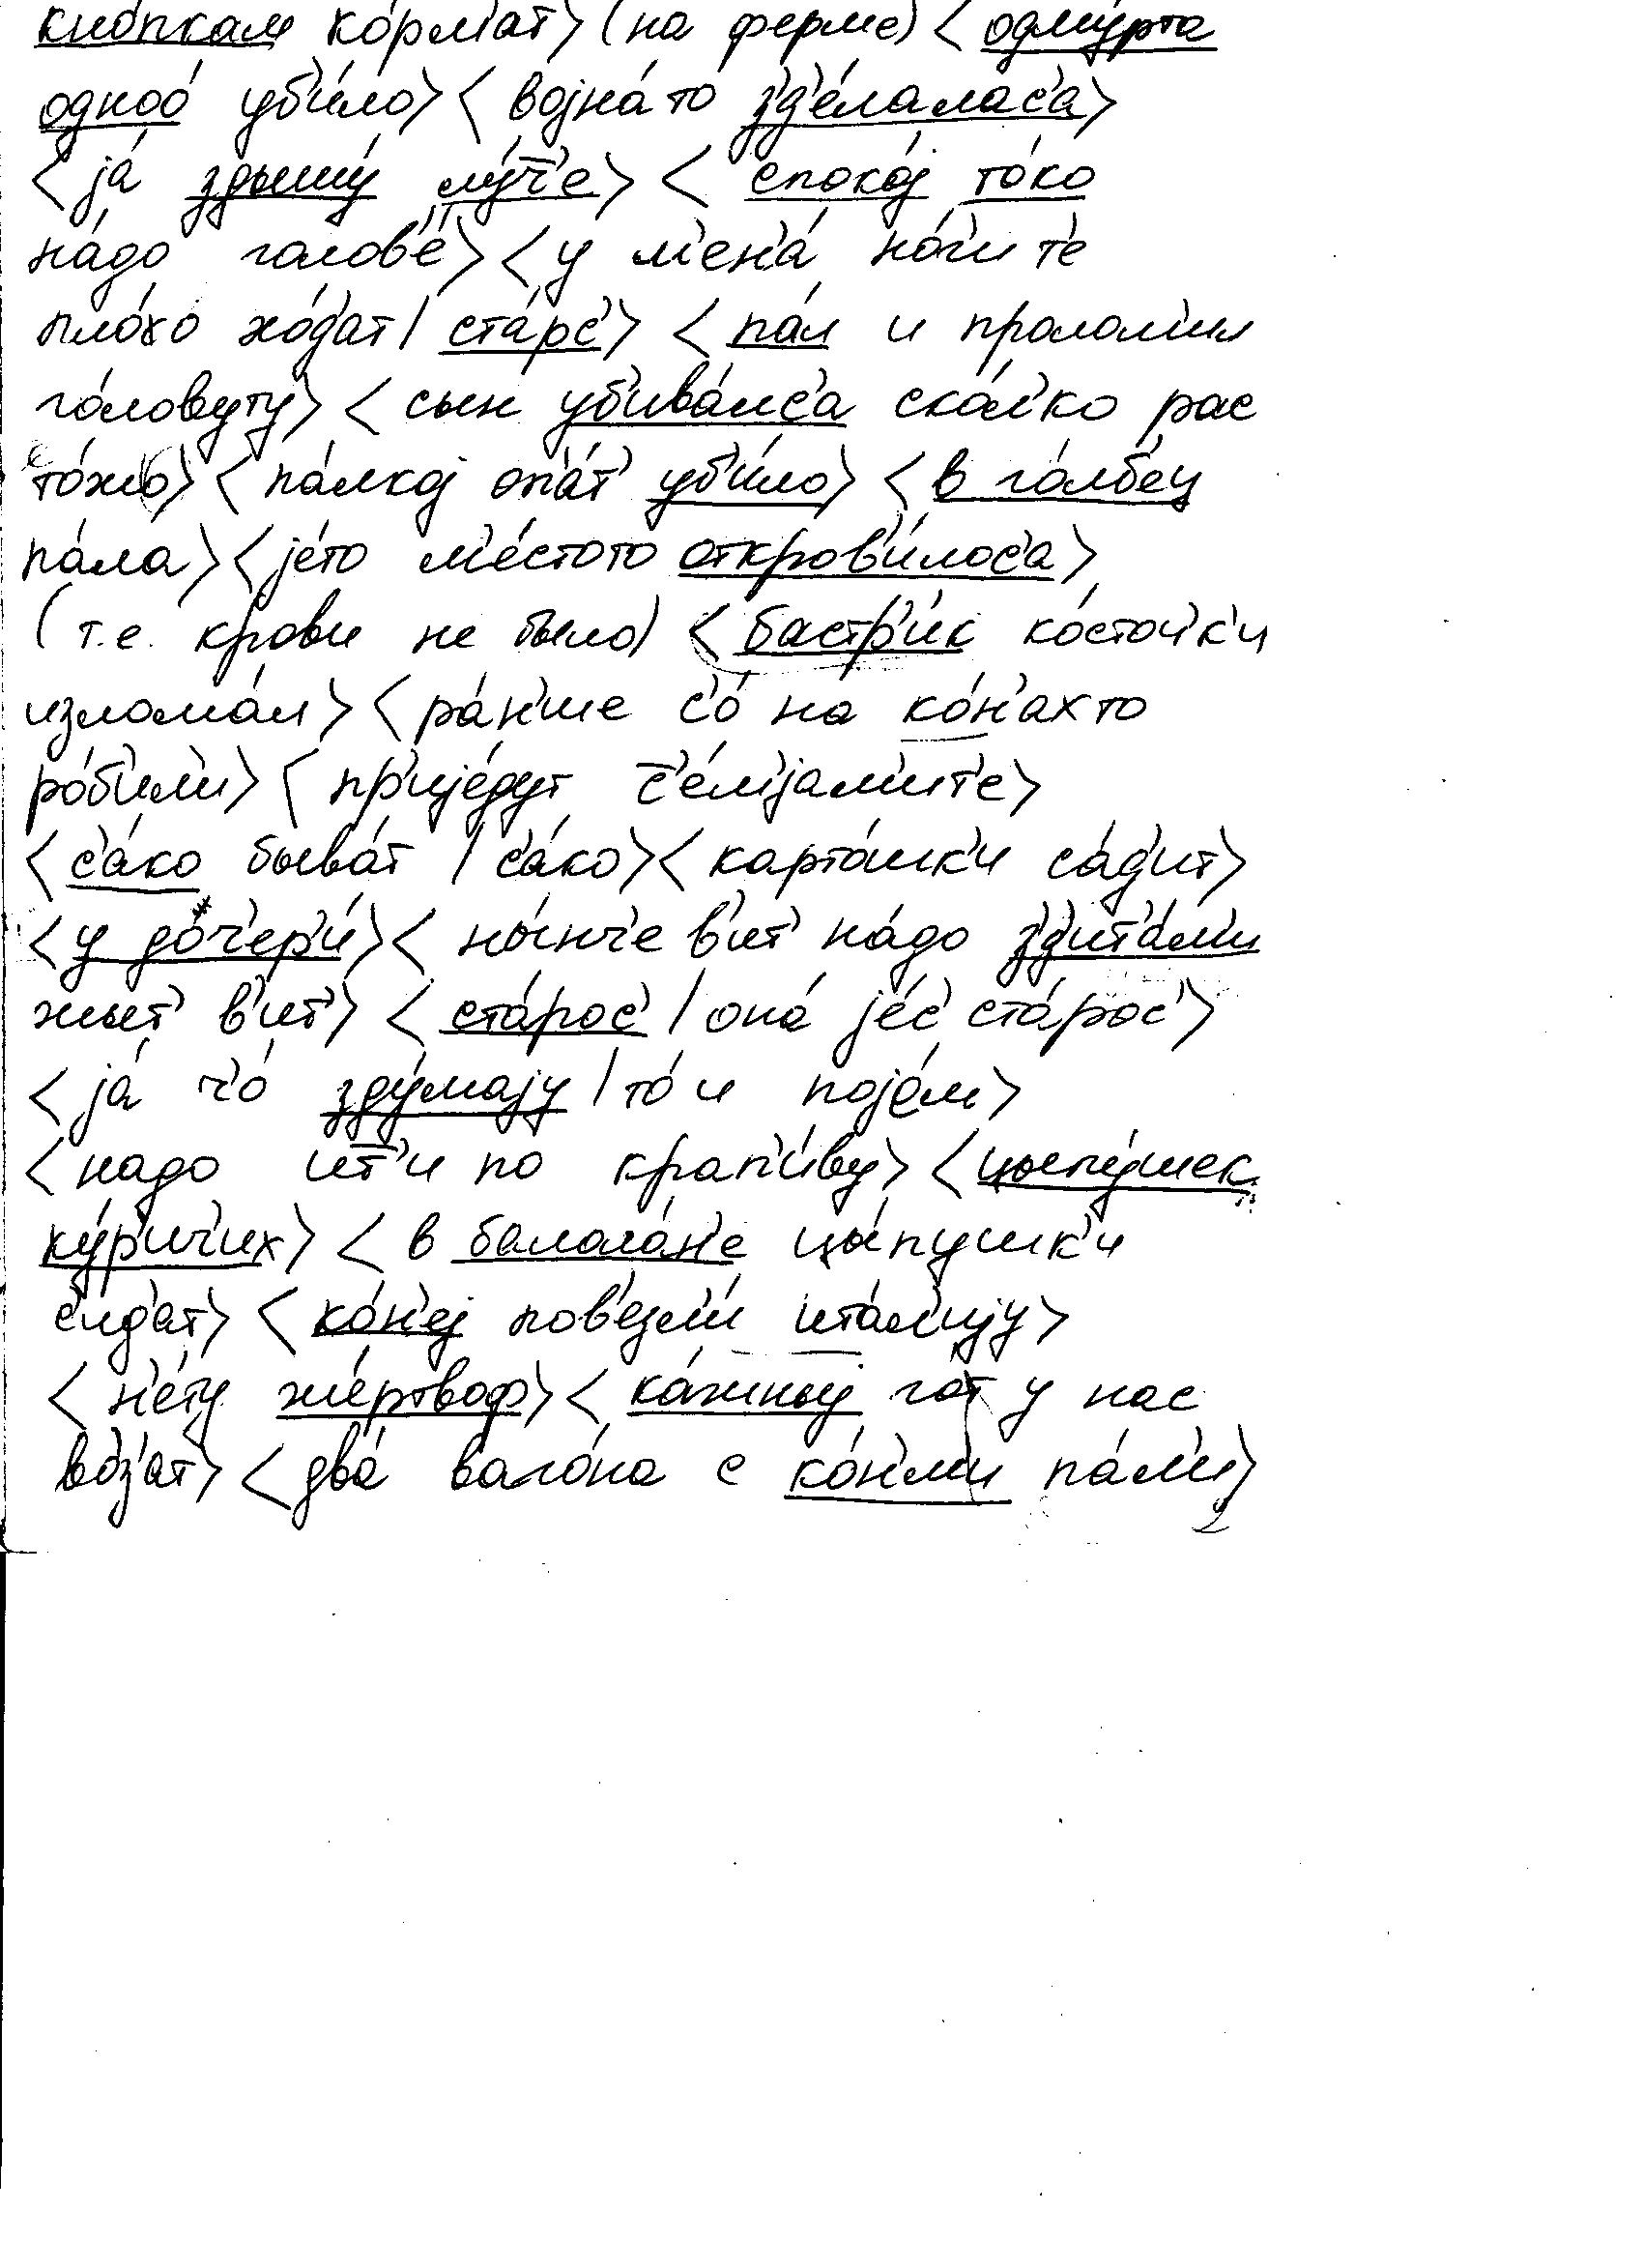 кно́пкам ко́рм'ат> (на ферме) <одму́рта
одноо́ уб'и́ло> <војна́то з'д'е́лалас'а>
<ја́ здышу́ лу́ч̄'е> <споко́ј то́ко
на́до голов'е́> <у м'ен'а́ но́г'и т'е
пло́хо хо́д'ат / ста́рс'> <па́л и пролом'ил
го́ловуту> <сын уб'ива́лс'а ско́л'ко рас
то́жо> <па́лкој оп'а́т' уб'и́ло> <в го́лб'ец
па́ла> <је́то м'е́стото откров'и́лос'а>
(т.е. крови не было) <бастр'и́к ко́сточ'к'и
излома́л> <ра́н'ше с'о́ на ко́н'ахто
ро́б'ил'и> <пр'ије́дут с̄'е́мјам'ит'е>
<с'а́ко быва́т / с'а́ко> <карто́шк'и са́д'ит>
<у до́ч'ер'и́> <ны́нч'е в'ит' на́до з'д'ит'а́м'и
жыт' в'ит'> <ста́рос' / она́ је́с' ста́рос'>
<ја́ ч'о́ зду́мају / то́ и појо́м>
<надо ит̄'и по крап'и́ву> <цыпу́шек
ку́р'ич'их> <в балага́н'е цы́пушк'и
с'ид'а́т> <ко́н'еј пов'езл'и́ ита́л'ију>
<н'е́ту же́ртвоф> <ка́жныј го́т у нас
во́з'ат> <два́ ваго́на с ко́н'м'и па́л'и>